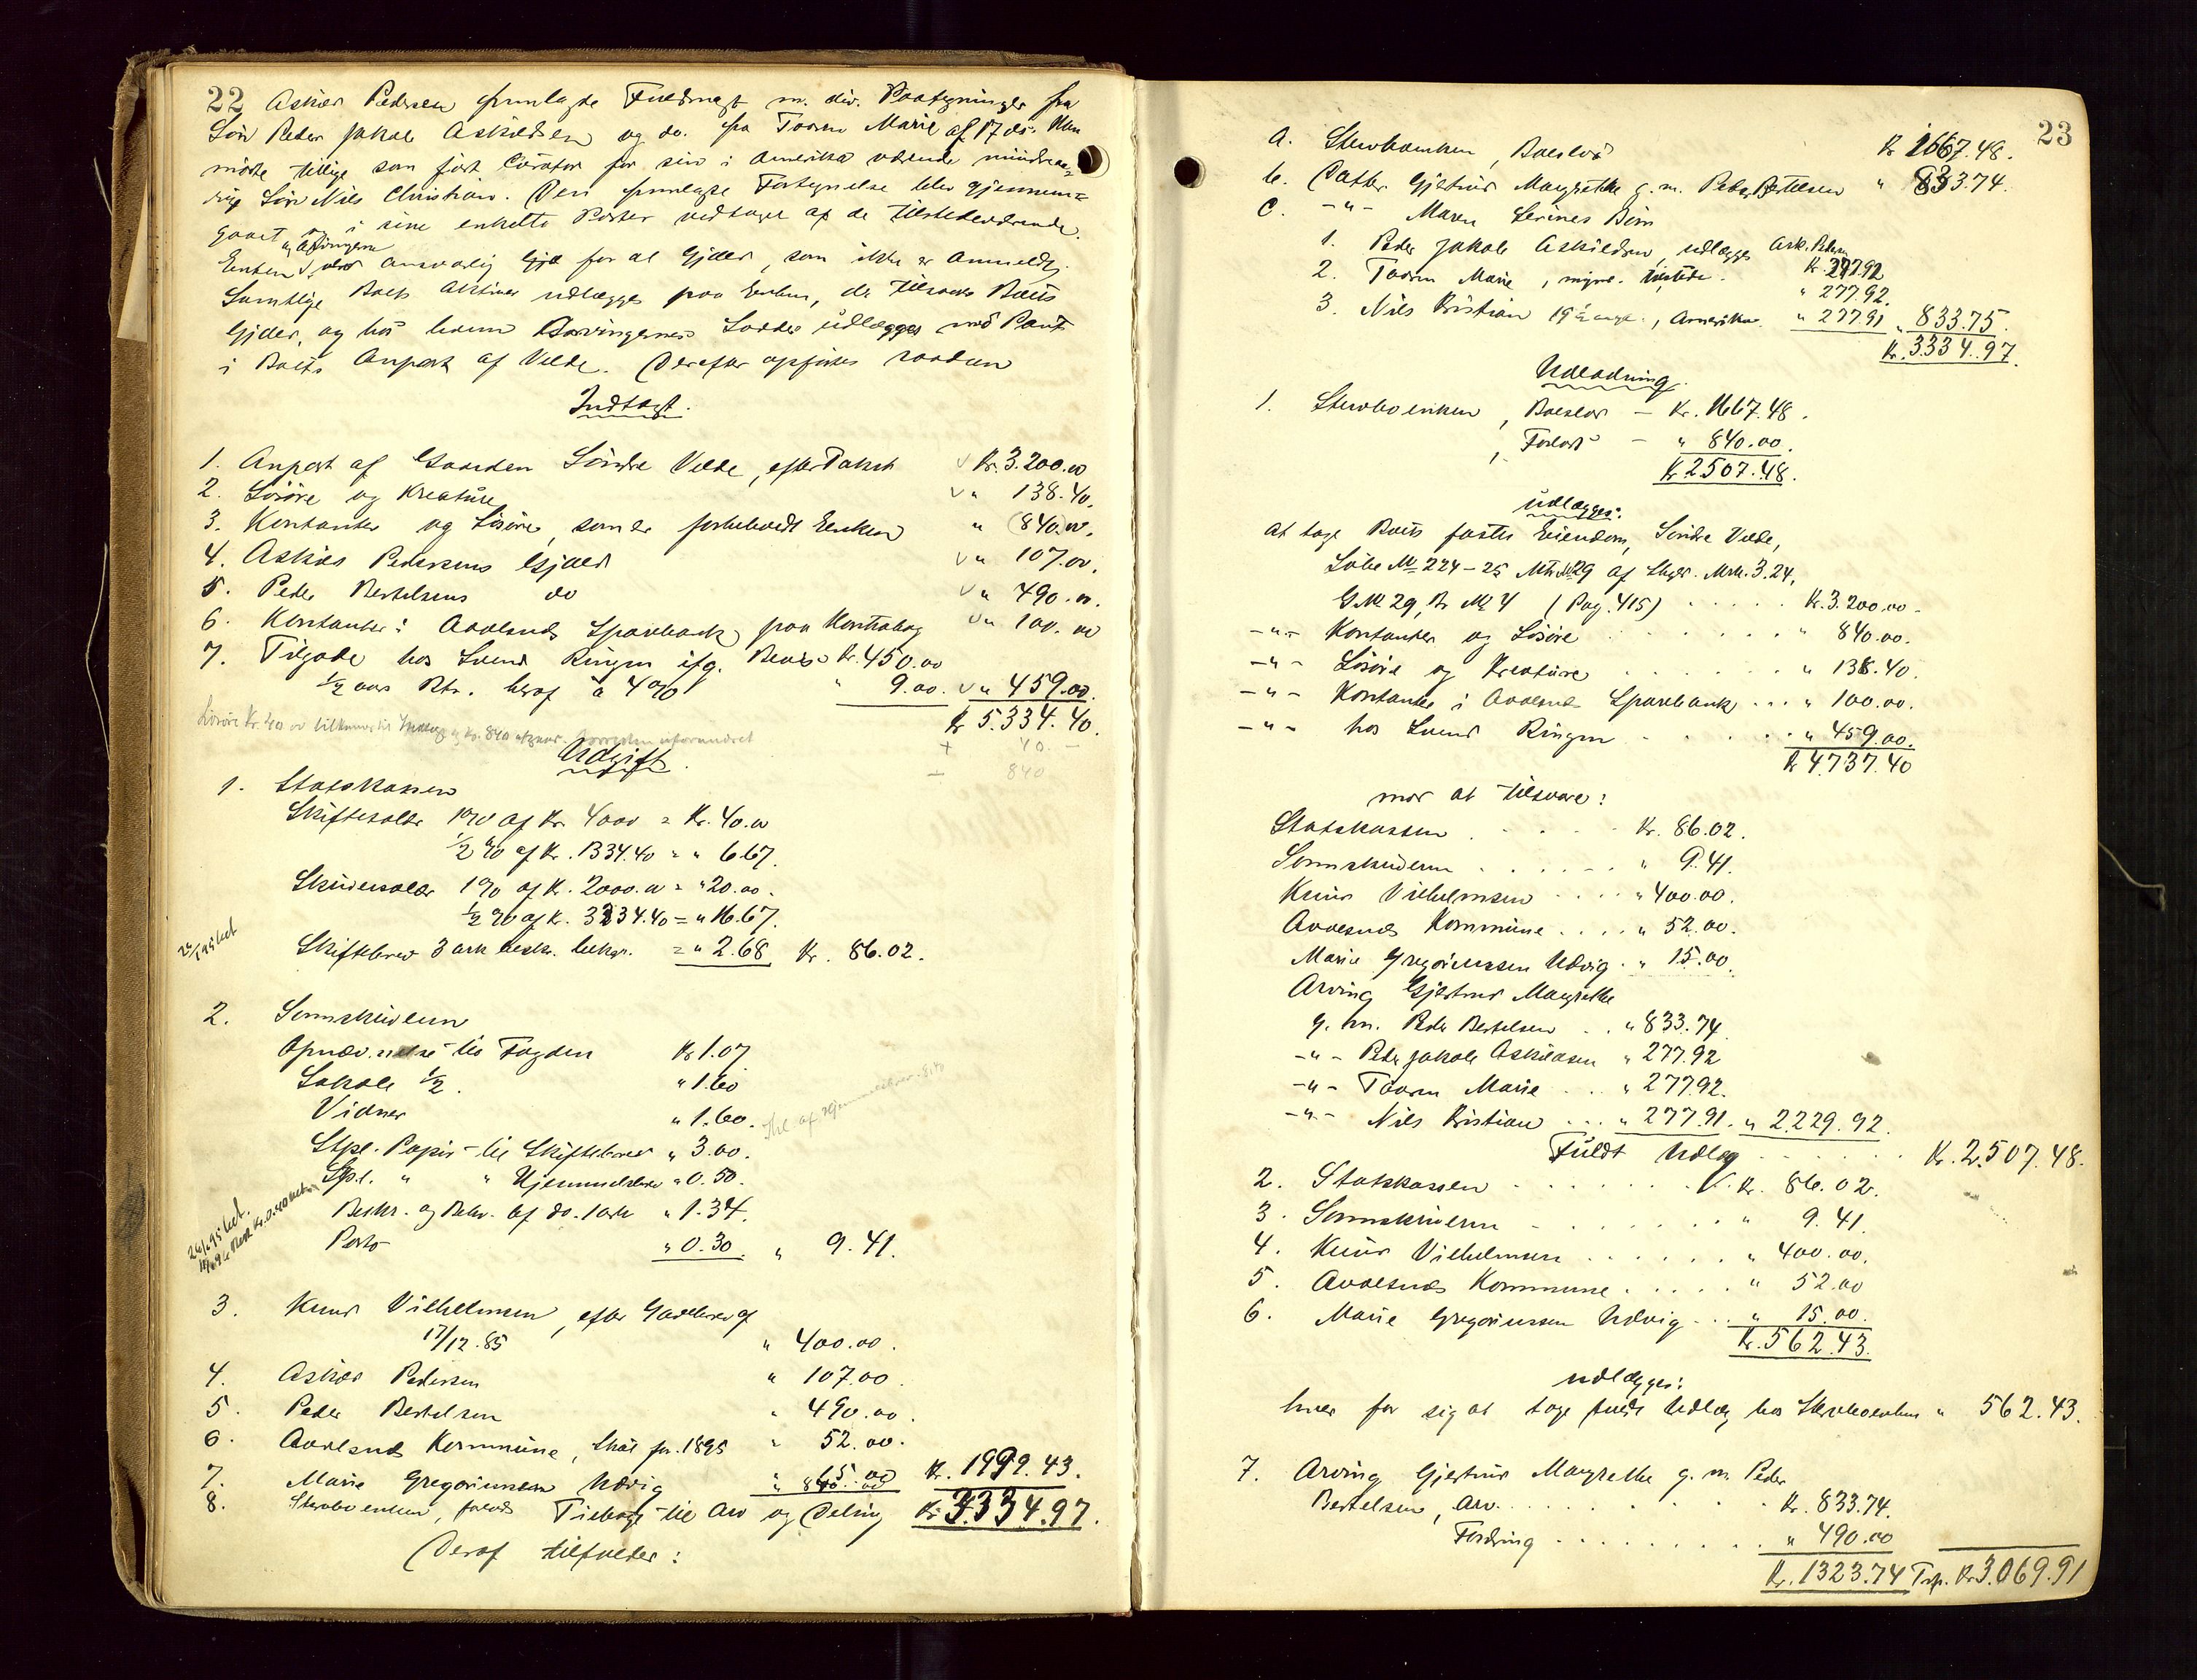 22 Askild Pedersen fremlagde Fuldmagt m. div. Paategninger fra
Søn Peder Jakob Askildsen og do. fra Taarn Marie af 17 ds. Han
mødte tillige som født Curator for sin i Amerika værende mindreaa-
rige Søn Nils Christian. Den fremlagte Fortegnelse blev gjennem-
gaaet og i sine enkelte Poster vedtaget af de tilstedeværende.
Enken og Arvingerne ansvarlig for al Gjæld, som ikke er anmeldt.
Samtlige Boets Aktiver udlægges paa Enken, der tilsvarer Boets
Gjæld, og hos hvem Arvingernes Lodder udlægges med Pant
i Boets Anpart af Velde. Derefter opgjøres saadan
Indtægt.
1. Anpart af Gaarden Søndre Velde, efter Takst Kr. 3.200.00
2. Løsøre og Kreature " 138.40.
3. Kontanter og Løsøre, som er forbeholdt Enken " (840.00.
4. Askild Pedersens Gjæld " 107.00.
5. Peder Bertelsens do " 490.00.
6. Kontanter: Avalsnæs Sparebank paa Kontrabog " 100.00
7. Tilgode hos Svend Ringen ifg. Bevis Kr. 450.00
1/2 aars Rte. heraf à 4% " 9.00. " 459.00.
Kr 5.334.40.
Løsøre Kr. 40 00 tilkommer uforandret
+ 40.–
÷ 840
Udgift.
1. Statskassen
Skiftesalær 1% af Kr. 4000 = Kr. 40.00
1/2 % af Kr. 1334.40 = " 6.67.
Skriversalær 1% af Kr. 2000.00 = " 20.00.
1/2 % af Kr. 3334.40 = " 16.67.
Skiftebrev 3 ark beskr. bekgr. = " 2.68 Kr. 86.02.
2. Sorenskriveren
Opnævnelse til Fogden Kr 1.07
Lokale 1/2. " 1.60
Vidner " 1.60.
Stpl. Papir til Skiftebrev " 3.00.
Stpl. " " Hjemmelsbrev " 0.50.
Beskr. og Bekr. af do. 1 ark " 1.34.
Porto " 0.30. " 9.41.
3. Knud Vilhelmsen, efter Gældsbrev af
17/12.85 " 400.00.
4. Askild Pedersen " 107.00.
5. Peder Bertelsen " 490.00.
6. Avalsnæs Kommune, Skat for 1895 " 52.00.
7. Marie Gregoriussen Udvig " 15.00 Kr. 1999.43.
8. Sterboenken, forlods Tilbage til Arv og Deling Kr. 3334.97.
Deraf tilfalder:
23
a. Sterboenken, Boeslod Kr 1667.48.
b. Datter Gjertrud Margrethe g. m. Peder Bertelsen " 833.74.
c. –"– Maren Serines Børn
1. Peder Jakob Askildsen, udlægges Ask. Peders. Kr. 277.92
2. Taarn Marie, mynd. " 277.92.
3. Nils Kristian 19 1/2 aar, Amerika " 277.91 " 833.75.
Kr. 3334.97.
Udlodning.
1. Sterboenken, Boeslod – Kr. 1667.48.
, Forlods – " 840.00.
Kr 2507.48.
udlægges:
at tage Boets faste Eiendom, Søndre Velde,
Løbe No 224-25 Mtr. No 29 af Skyld Mrk. 3.24,
G. No 29, Br. No 4 (Pag. 415) Kr. 3.200.00.
–"– Kontanter og Løsøre " 840.00.
–"– Løsøre og Kreature " 138.40.
–"– Kontanter i Avalsnæs Sparebank " 100.00.
–"– hos Svend Ringen " 459.00.
Kr 4.737.40
mod at tilsvare:
Statskassen Kr. 86.02.
Sorenskriveren " 9.41.
Knud Vilhelmsen " 400.00.
Avalsnæs Kommune " 52.00.
Marie Gregoriussen Udvig " 15.00.
Arving Gjertrud Margrethe
g. m. Peder Bertelsen " 833.74
–"– Peder Jakob Askildsen " 277.92
–"– Taarn Marie " 277.92.
–"– Nils Kristian " 277.91. " 2.229.92.
Fuldt Udlæg Kr. 2.507.48.
2. Statskassen Kr. 86.02.
3. Sorenskriveren " 9.41.
4. Knud Vilhelmsen " 400.00.
5. Avalsnæs Kommune " 52.00
6. Marie Gregoriussen Udvig " 15.00.
Kr. 562.43.
udlægges:
hver for sig at tage fuldt Udlæg hos Sterboenken " 562.43.
7. Arving Gjertrud Margrethe g. m. Peder
Bertelsen, Arv Kr. 833.74.
Fordring " 490.00
Kr. 1323.74 Trsp. Kr 3.069.91